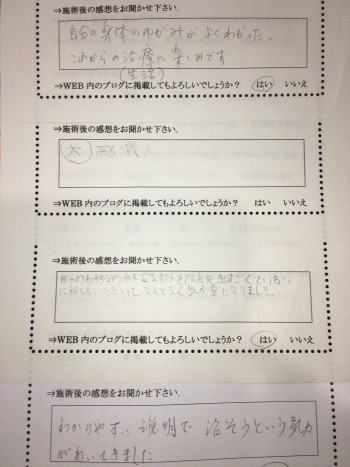 ⇒施術後の感想をお聞かせ下さい。
自分の身体のゆがみがよくわかった。
これからの治療に楽しみです
(生活)
⇒WEB内のブログに掲載してもよろしいでしょうか？ はい いいえ
⇒施術後の感想をお聞かせ下さい。
大 感激！
⇒WEB内のブログに掲載してもよろしいでしょうか？ はい いいえ
⇒施術後の感想をお聞かせ下さい。
なんとなく気が楽になりました。
⇒WEB内のブログに掲載してもよろしいでしょうか？ はい いいえ
⇒施術後の感想をお聞かせ下さい。
わかりやすい説明で 治そうという気力
がわいてきました